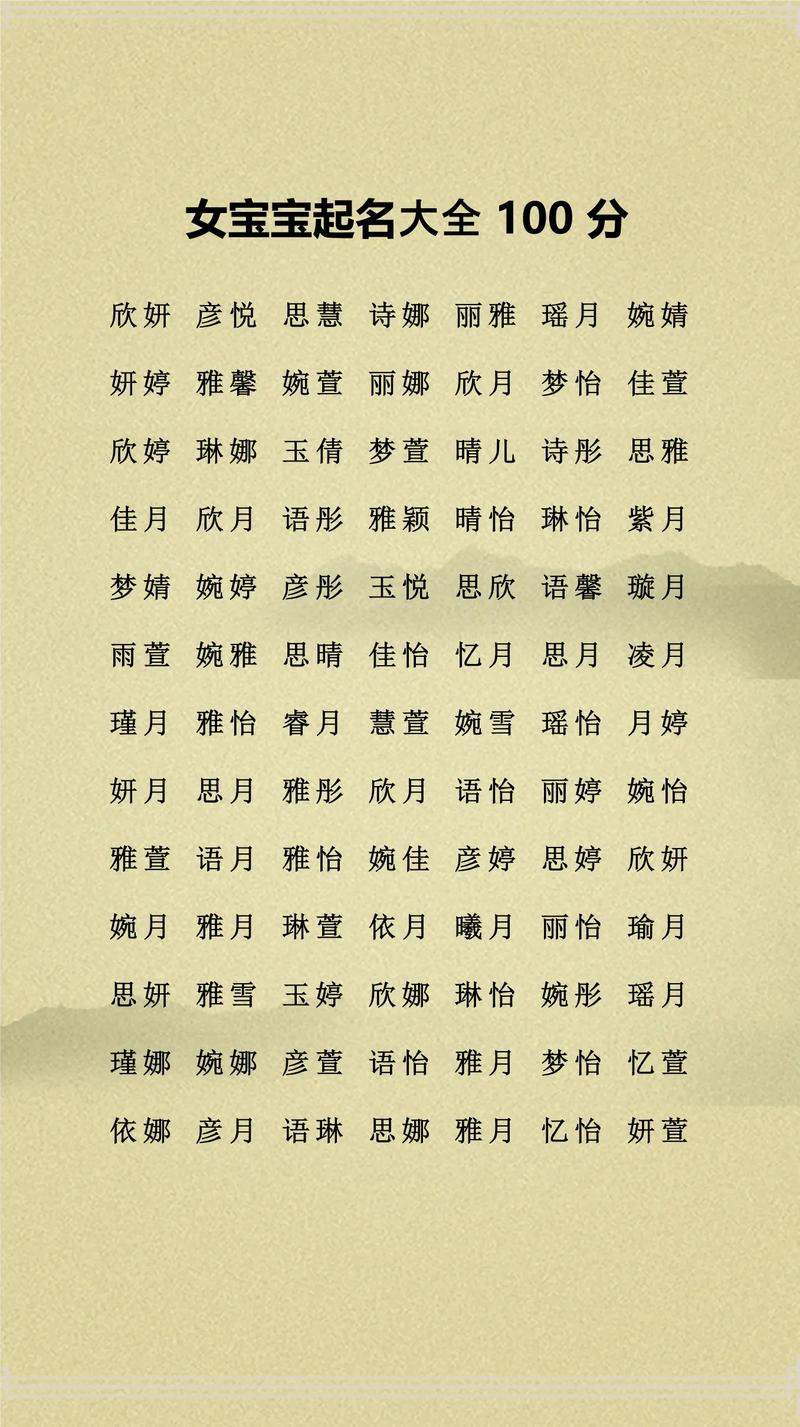 女宝宝起名大全 100 分
欣妍 彦悦 思慧 诗娜 丽雅 瑶月 婉婧
妍婷 雅馨 婉萱 丽娜 欣月 梦怡 佳萱
欣婷 琳娜 玉倩 梦萱 晴儿 诗彤 思雅
佳月 欣月 语彤 雅颖 晴怡 琳怡 紫月
梦婧 婉婷 彦彤 玉悦 思欣 语馨 璇月
雨萱 婉雅 思晴 佳怡 忆月 思月 凌月
瑾月 雅怡 睿月 慧萱 婉雪 瑶怡 月婷
妍月 思月 雅彤 欣月 语怡 丽婷 婉怡
雅萱 语月 雅怡 婉佳 彦婷 思婷 欣妍
婉月 雅月 琳萱 依月 曦月 丽怡 瑜月
思妍 雅雪 玉婷 欣娜 琳怡 婉彤 瑶月
瑾娜 婉娜 彦萱 语怡 雅月 梦怡 忆萱
依娜 彦月 语琳 思娜 雅月 忆怡 妍萱